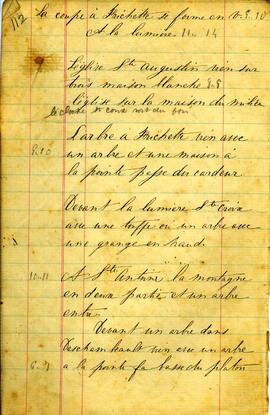 112
la coupe à Frichette se ferme en 0.8.10
A la lumière 11 à 14
L'église St Augustin vien sur
trois maison blanche 8.8
l'église sur la maison du milieu
L'arbre à Frichette vien avec
8.10 un arbre et une maison à
la pointe passe des cardeur
Devant la lumière Ste Croix
avec une touffe ou un arbre avec
une grange en haut
10-11 A St Antoine la montagne
en deux partie et un arbre
entre
Devant un arbre dans
Deschambault vien avec un arbre
à la pointe fa basse du platon